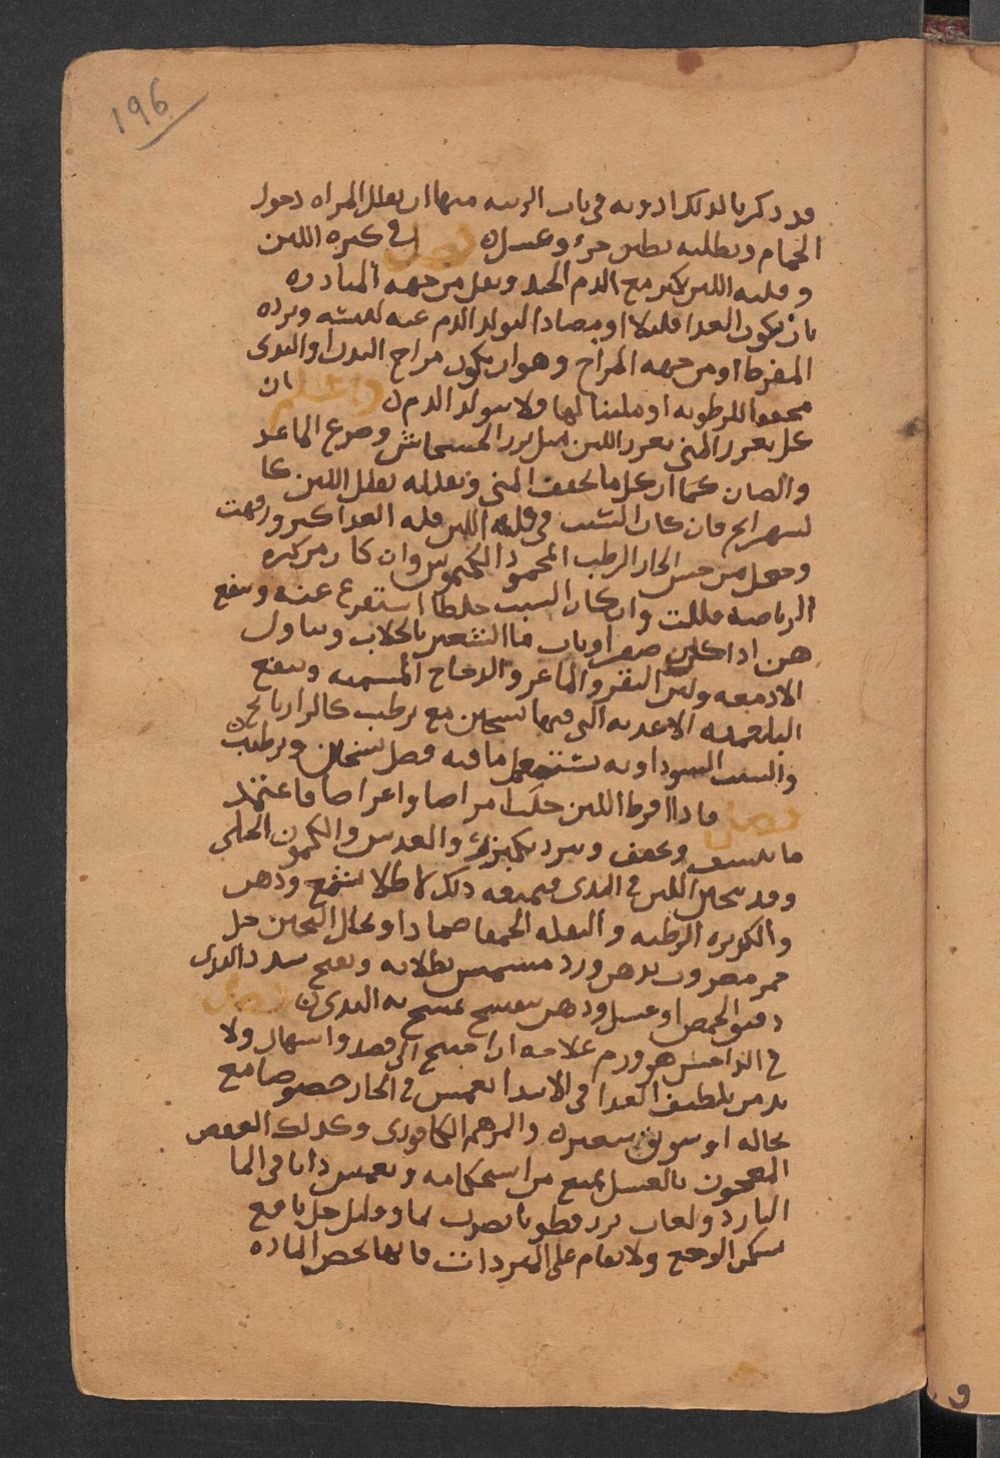 ١٩٦
قد ذكرنا لذلك ادويه في باب الزينه منها ان يقلل المراه دخول
الحمام ويطليه بطين حر وعسل فصل في كثره اللبن
وقلته اللبن يكثر مع الدم الجيد ويقل من جهه الماده
بان يكون الغدا قليلا او مضادا لتولد الدم عنه ليبسه وبرده
المفرط او من جهه المزاج وهو ان يكون مزاج البدن او الثدى
مجففا للرطوبه او ملينا لها ولا يتولد الدم واعلم ان
كل يغزر المني يغزر اللبن مثل بزر الخشخاش وضرع الماعز
والضان كما ان كل ما يجفف المني ويقلله يقلل اللبن كا
لشهدانج فان كان السبب في قلة اللبن قله الغدا كثر ورفهت
وجعل من جنس الحار الرطب المحمود الكيموس وان كان من كثره
الرياضه قللت وان كان السبب خلطا استفرغ عنه وينفع
هن اذا كان صفراويات ما الشعير بالجلاب ويتناول
الادمغه ولبن البقر والماعز والدجاج المسمنه وينفع
البلغميه الاغديه التي فيها تسخين مع ترطيب كالرازيانج
والسبب السوداويه يستعمل ما فيه فضل تسخين وترطيب
فصل فاذا افرط اللبن جلب امراضا واعراضا فاعتمد
ما ينشف ويجفف ويبرد كبزر والعدس والكمون الجبلي
وقد يتجبن اللبن في الثدى فيمنعه ذلك كل طلا بشمع ودهن
والكزبره الرطبه والبقله الحمقا ضمادا ويحلل التجبن خل
خمر مضروب بدهن ورد مشمس يطلا به ويفتح سدد الثدى
دقيق الحمص او عسل ودهن بنفسج يمسح به الثدى فصل
في الداحس هو ورم علامه ان احتيج الى فصد واسهال ولا
بد من تلطيف الغدا في الابتدا يغمس في الحار خصوصا مع
نخاله او سويق شعير والمرهم الكافورى وكذلك العفص
المعجون بالعسل يمنع من استحكامه ويغمس دايا في الما
البارد ولعاب بزر قطونا مضرب بما وقليل خل نافع
يسكن الوجع ولا يقام على المبردات فانها تحصر الماده